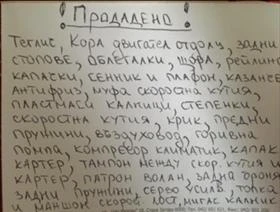 ! Продадено !
Теглич, Кора двигател отдолу, задни
стопове, облегалки, щора, рейлинг
капаски, сенник и плафон, казанче
Антифриз, муфа скоростна кутия,
пластмаси калници, степенки,
скоростна кутия, крик, предни
пружини, въздуховод, горивна
помпа, компресор климатик, капак
картер, тампон между скор. кутия и
картер, патрон волан, задна броня
задни пружини, серво усилв, топка
и маншон скорост. лост, мигач калник